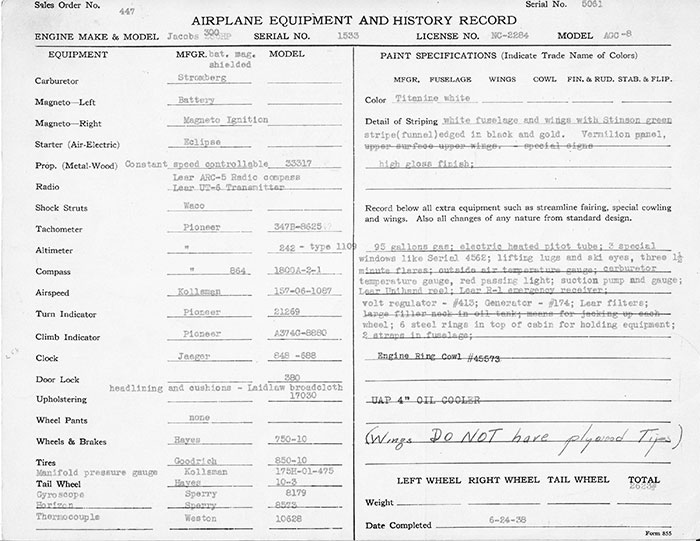 Sales Order No. 447 Serial No. 5061
AIRPLANE EQUIPMENT AND HISTORY RECORD
ENGINE MAKE & MODEL Jacobs 300 HP SERIAL NO. 1533 LICENSE NO. NC-2284 MODEL AGC-8
EQUIPMENT MFGR. bat. mag. shielded MODEL
Carburetor Stromberg
Magneto—Left Battery
Magneto—Right Magneto Ignition
Starter (Air-Electric) Eclipse
Prop. (Metal-Wood) Constant speed controllable 33317
Lear ARC-5 Radio compass
Radio Lear UT-6 Transmitter
Shock Struts Waco
Tachometer Pioneer 347B-8625
Altimeter " 242 - type 1109
Compass " 864 1800A-2-1
Airspeed Kollsman 157-06-1087
Turn Indicator Pioneer 21269
Climb Indicator Pioneer A374G-8880
Clock Jaeger 848 -588
Door Lock 380
headlining and cushions - Laidlaw broadcloth
Upholstering 17030
Wheel Pants none
Wheels & Brakes Hayes 750-10
Tires Goodrich 850-10
Manifold pressure gauge Kollsman 175H-01-475
Tail Wheel Hayes 10-3
Gyroscope Sperry 8179
Horizon Sperry 8573
Thermocouple Weston 10628
PAINT SPECIFICATIONS (Indicate Trade Name of Colors)
MFGR. FUSELAGE WINGS COWL FIN. & RUD. STAB. & FLIP.
Color Titanine white
Detail of Striping white fuselage and wings with Stinson green
stripe(funnel)edged in black and gold. Vermilion panel,
upper surface upper wings. - special signs
high gloss finish;
Record below all extra equipment such as streamline fairing, special cowling
and wings. Also all changes of any nature from standard design.
95 gallons gas; electric heated pitot tube; 3 special
windows like Serial 4562; lifting lugs and ski eyes, three 1½
minute flares; outside air temperature gauge; carburetor
temperature gauge, red passing light; suction pump and gauge;
Lear Unihand reel; Lear R-1 emergency receiver;
volt regulator - #413; Generator - #174; Lear filters;
large filler neck in oil tank; means for jacking up each
wheel; 6 steel rings in top of cabin for holding equipment;
2 straps in fuselage;
Engine Ring Cowl #45573
UAP 4" OIL COOLER
(Wings DO NOT have plywood Tips)
LEFT WHEEL RIGHT WHEEL TAIL WHEEL TOTAL
Weight
Date Completed 6-24-38
Form 855